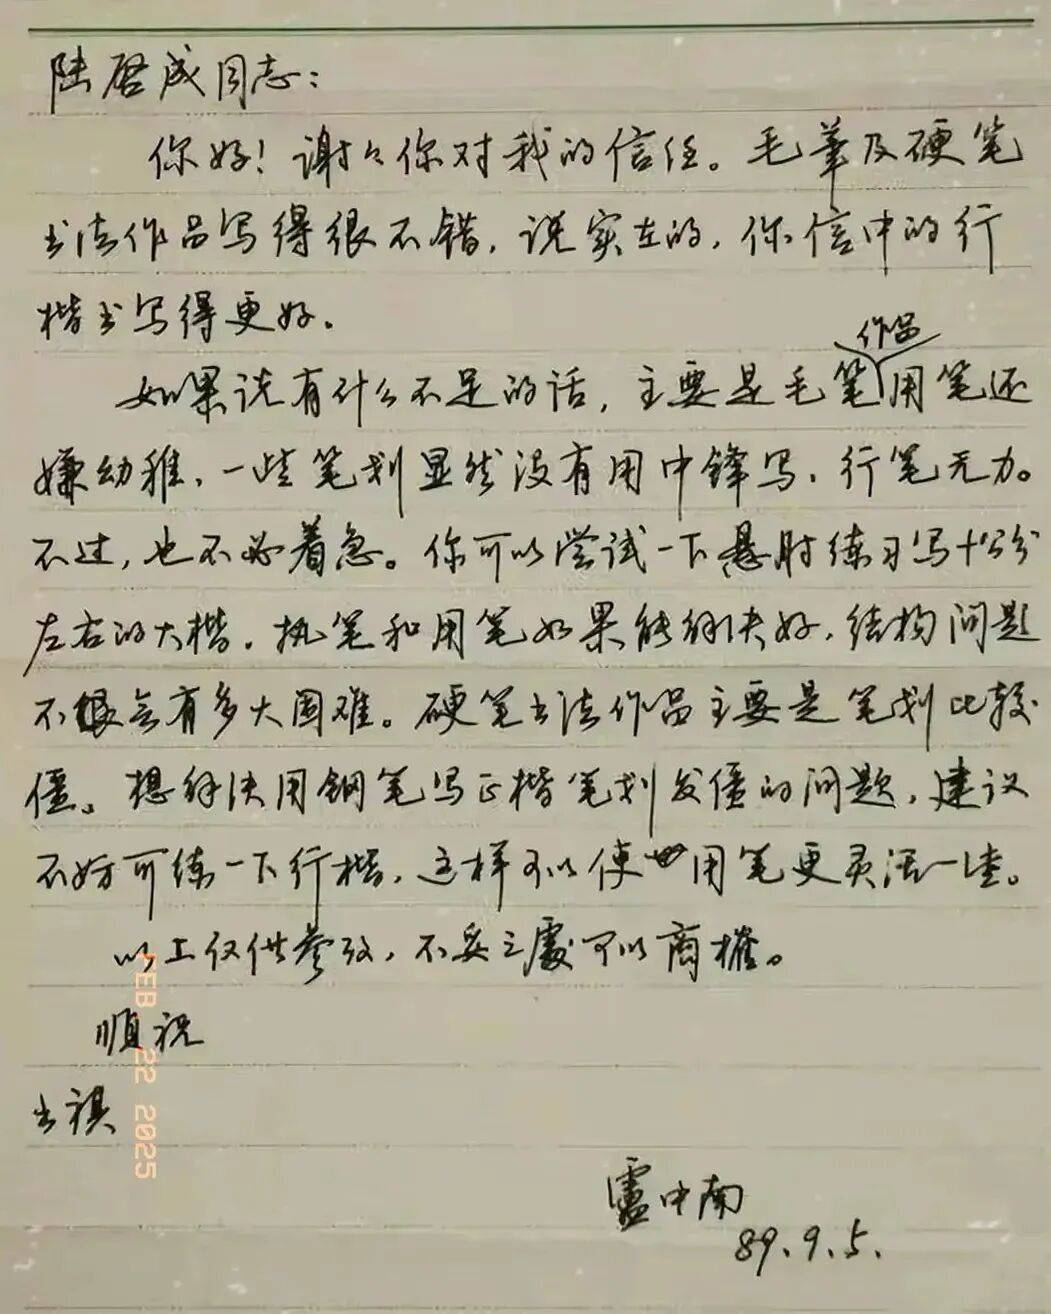 陆启成同志：
你好！谢々你对我的信任。毛筆及硬笔
书法作品写得很不错，说实在的，你信中的行
楷书写得更好。
作品
如果说有什么不足的话，主要是毛笔用笔还
嫌幼稚，一些笔划显然没有用中锋写，行笔无力。
不过，也不必着急。你可以尝试一下悬肘练习写十公分
左右的大楷。执笔和用笔如果能解决好，结构问题
不会有多大困难。硬笔书法作品主要是笔划比较
僵。想解决用钢笔写正楷笔划发僵的问题，建议
不妨可练一下行楷，这样可以使用笔更灵活一些。
以上仅供参考，不妥之處可以商榷。
順祝
书祺
盧中南
89.9.5.
FEB 22 2025